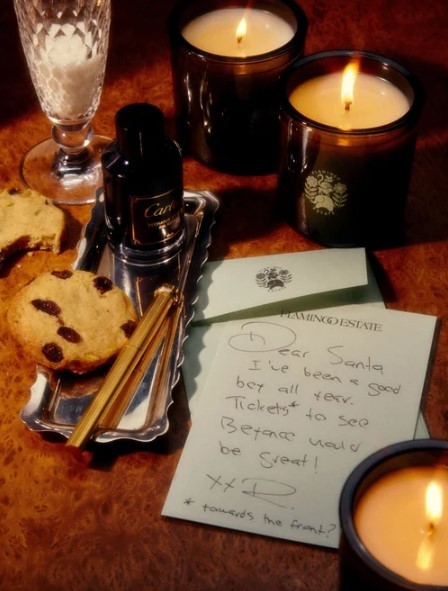 FLAMINGO ESTATE
Dear Santa
I've been a good
boy all year.
Tickets* to see
Beyonce would
be great!
xx R
* towards the front?